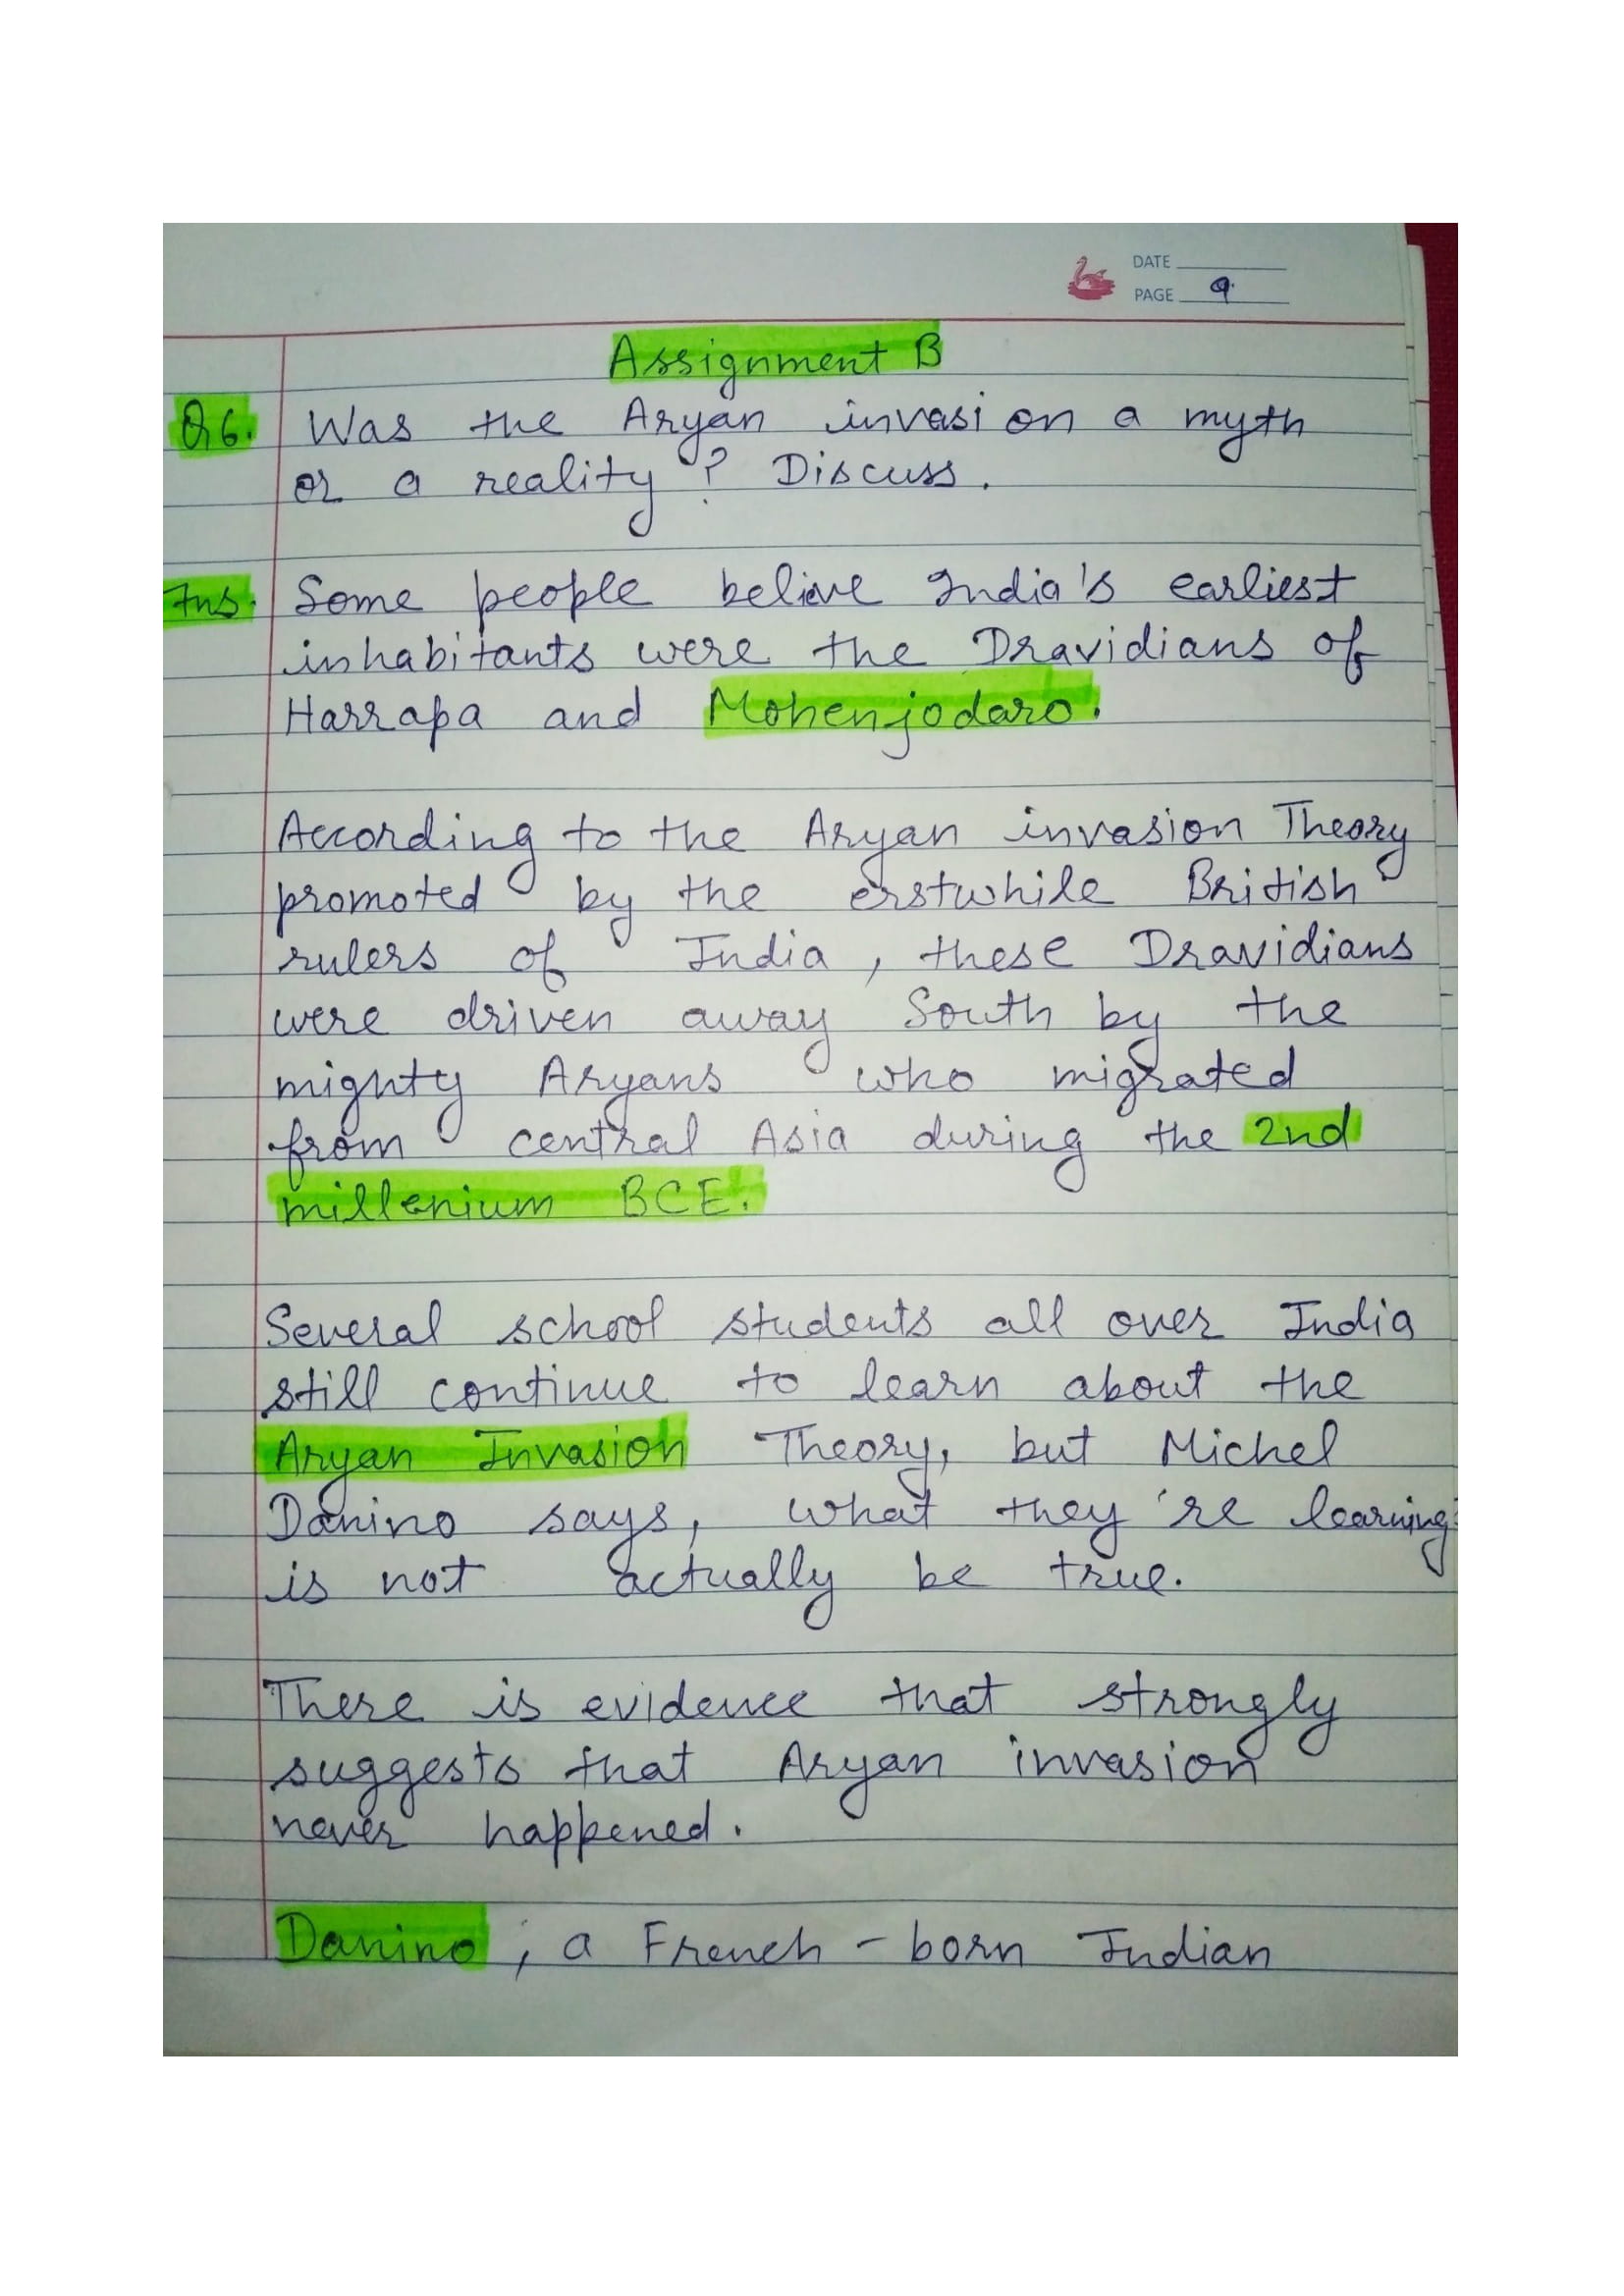 DATE
PAGE 9.
Assignment B
Q6. Was the Aryan invasion a myth
or a reality? Discuss.
Ans. Some people belive India's earliest
inhabitants were the Dravidians of
Harrapa and Mohenjodaro.
According to the Aryan invasion Theory
promoted by the erstwhile British
rulers of India, these Dravidians
were driven away South by the
mighty Aryans who migrated
from central Asia during the 2nd
millenium BCE.
Several school students all over India
still continue to learn about the
Aryan Invasion Theory, but Michel
Danino says, what they're learning
is not actually be true.
There is evidence that strongly
suggests that Aryan invasion
never happened.
Danino, a French - born Indian